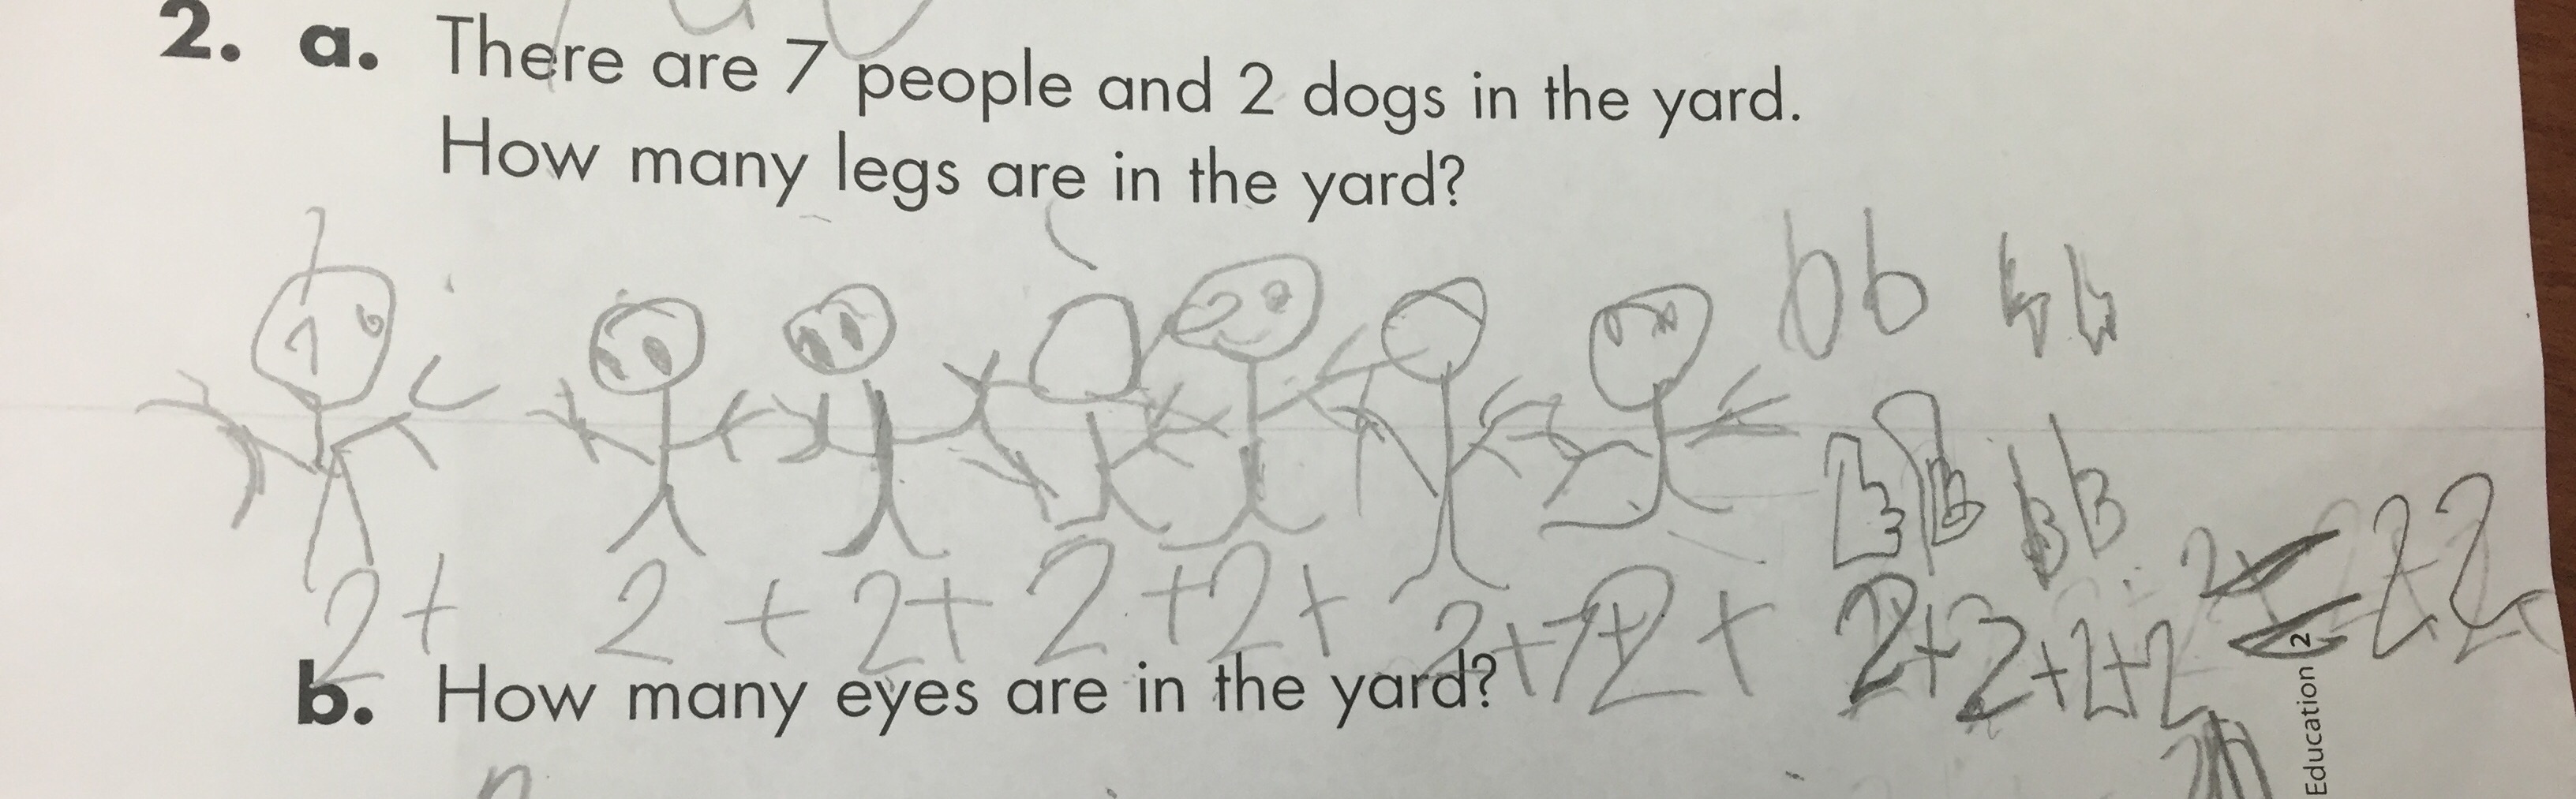 2. a. There are 7 people and 2 dogs in the yard.
How many legs are in the yard?
2 + 2 + 2 + 2 + 2 + 2 + 2 + 2 + 2 + 2 + 2 = 22
b. How many eyes are in the yard?
Education 2